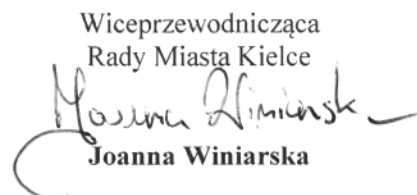 Wiceprzewodnicząca
Rady Miasta Kielce
Joanna Winiarska
Joanna Winiarska